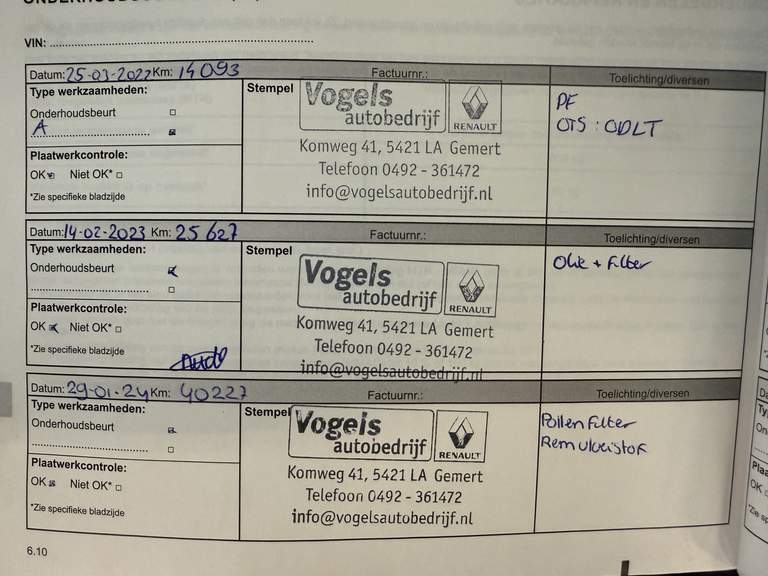 VIN:
Datum: 25-03-2022 Km: 14093 Factuurnr.: Toelichting/diversen
Type werkzaamheden:
Onderhoudsbeurt
A
Plaatwerkcontrole:
OK Niet OK*
*Zie specifieke bladzijde
Stempel
Vogels
autobedrijf
RENAULT
Komweg 41, 5421 LA Gemert
Telefoon 0492 - 361472
info@vogelsautobedrijf.nl
PF
OTS: ODLT
Datum: 14-02-2023 Km: 25627 Factuurnr.: Toelichting/diversen
Type werkzaamheden:
Onderhoudsbeurt
Plaatwerkcontrole:
OK Niet OK*
*Zie specifieke bladzijde
Stempel
Vogels
autobedrijf
RENAULT
Komweg 41, 5421 LA Gemert
Telefoon 0492 - 361472
info@vogelsautobedrijf.nl
Olie + filter
Datum: 29-01-24 Km: 40227 Factuurnr.: Toelichting/diversen
Type werkzaamheden:
Onderhoudsbeurt
Plaatwerkcontrole:
OK Niet OK*
*Zie specifieke bladzijde
Stempel
Vogels
autobedrijf
RENAULT
Komweg 41, 5421 LA Gemert
Telefoon 0492 - 361472
info@vogelsautobedrijf.nl
Pollenfilter
Remvloeistof
6.10